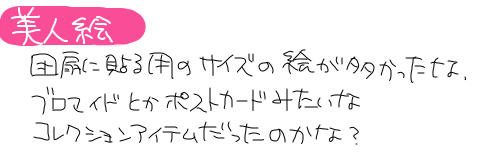 美人絵
団扇に貼る用のサイズの絵が多かったな.
ブロマイドとかポストカードみたいな
コレクションアイテムだったのかな？